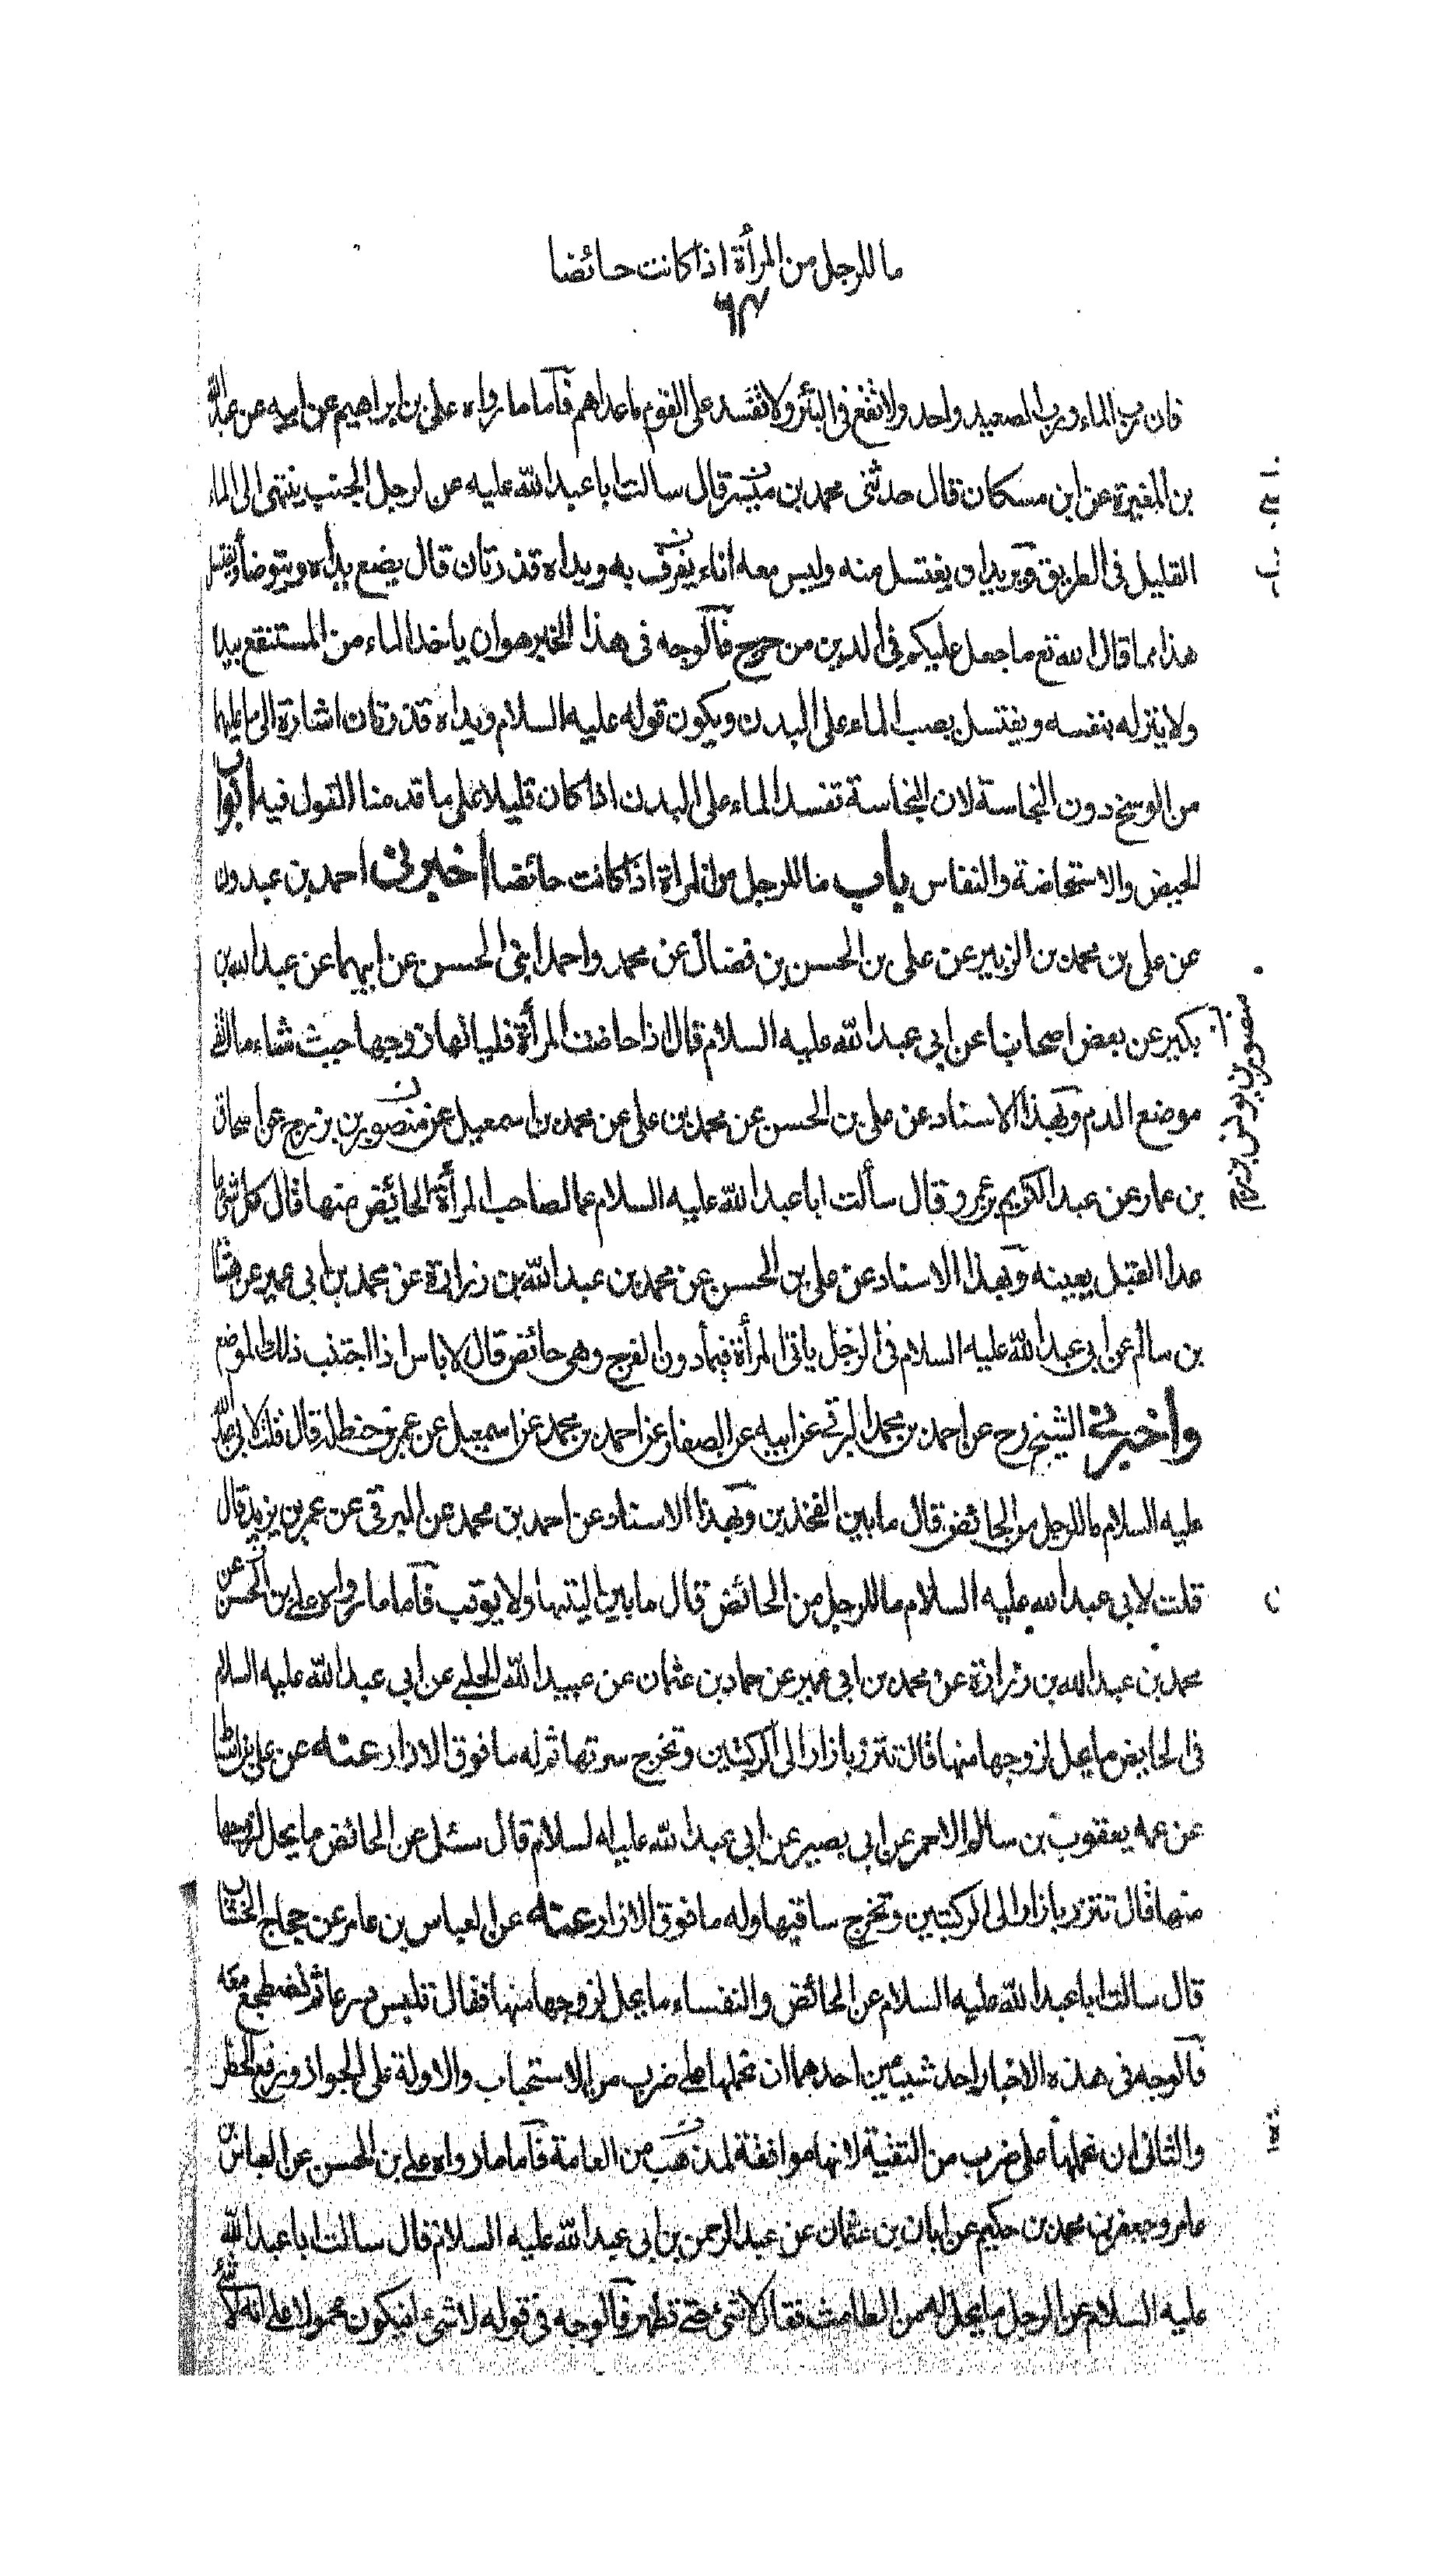 ما للرجل من المرأة اذا كانت حائضا
٦٣
فان رب الماء ورب الصعيد واحد ولا تقع فى البئر ولا تفسد على القوم ماءهم فأما ما رواه على بن ابراهيم عن ابيه عن عبد الله
بن المغيرة عن ابن مسكان قال حدثنى محمد بن ميسر قال سالت ابا عبد الله عليه عن الرجل الجنب ينتهى الى الماء
القليل فى الطريق ويريد ان يغتسل منه وليس معه اناء يغرف به ويداه قذرتان قال يضع يده ويتوضأ ويغتسل
هذا مما قال الله تع ما جعل عليكم فى الدين من حرج فالوجه فى هذا الخبر هو ان ياخذ الماء من المستنقع بيده
ولا ينزله بنفسه ويغتسل بصب الماء على البدن ويكون قوله عليه السلام ويداه قذرتان اشارة الى ما عليهما
من الوسخ دون النجاسة لان النجاسة تفسد الماء على البدن اذا كان قليلا على ما قدمنا القول فيه ابواب
الحيض والاستحاضة والنفاس باب ما للرجل من المرأة اذا كانت حائضا اخبرنى احمد بن عبدون
عن على بن محمد بن الزبير عن على بن الحسن بن فضال عن محمد واحمد ابنى الحسن عن ابيهما عن عبد الله بن
بكير عن بعض اصحابنا عن ابى عبد الله عليه السلام قال اذا حاضت المرأة فلياتها زوجها حيث شاء ما اتقى
موضع الدم وبهذا الاسناد عن على بن الحسن عن محمد بن على عن محمد بن اسمعيل عن منصور بن بزرج عن اسحاق
بن عمار عن عبد الكريم بن عمرو قال سألت ابا عبد الله عليه السلام عما لصاحب المرأة الحائض منها قال كل شئ ما
عدا القبل بعينه وبهذا الاسناد عن على بن الحسن عن محمد بن عبد الله بن زرارة عن محمد بن ابى عمير عن هشام
بن سالم عن ابى عبد الله عليه السلام فى الرجل ياتى المرأة فيما دون الفرج وهى حائض قال لا باس اذا اجتنب ذلك الموضع
واخبرنى الشيخ رح عن احمد بن محمد البرقى عن ابيه عن الصفار عن احمد بن محمد عن اسمعيل عن عمر بن حنظلة قال قلت لابى عبد الله
عليه السلام ما للرجل من الحائض قال ما بين الفخذين وبهذا الاسناد عن احمد بن محمد عن البرقى عن عمر بن يزيد قال
قلت لابى عبد الله عليه السلام ما للرجل من الحائض قال ما بين اليتيها ولا يوقب فأما ما رواه على بن الحسن عن
محمد بن عبد الله بن زرارة عن محمد بن ابى عمير عن حماد بن عثمان عن عبيد الله الحلبى عن ابى عبد الله عليه السلام
فى الحايض ما يحل لزوجها منها قال تتزر بازار الى الركبتين وتخرج سرتها ثم له ما فوق الازار عنه عن على بن اسباط
عن عمه يعقوب بن سالم الاحمر عن ابى بصير عن ابى عبد الله عليه السلام قال سئل عن الحائض ما يحل لزوجها
منها قال تتزر بازار الى الركبتين وتخرج ساقيها وله ما فوق الازار عنه عن العباس بن عامر عن حجاج الخشاب
قال سالت ابا عبد الله عليه السلام عن الحائض والنفساء ما يحل لزوجها منها فقال تلبس درعا ثم تضطجع معه
فالوجه فى هذه الاخبار احد شيئين احدهما ان نحملها على ضرب من الاستحباب والاولة على الجواز ورفع الحظر
والثانى ان نحملها على ضرب من التقية لانها موافقة لمذهب من العامة فأما ما رواه على بن الحسن عن العباس بن
عامر وجعفر بن محمد بن حكيم عن ابان بن عثمان عن عبد الرحمن بن ابى عبد الله عليه السلام قال سالت ابا عبد الله
عليه السلام عن الرجل ما يحل له من الطامث فقال لا شئ حتى تطهر فالوجه فى قوله لا شئ ان يكون محمولا على انه لا شئ
منصور بن يونس بزرج